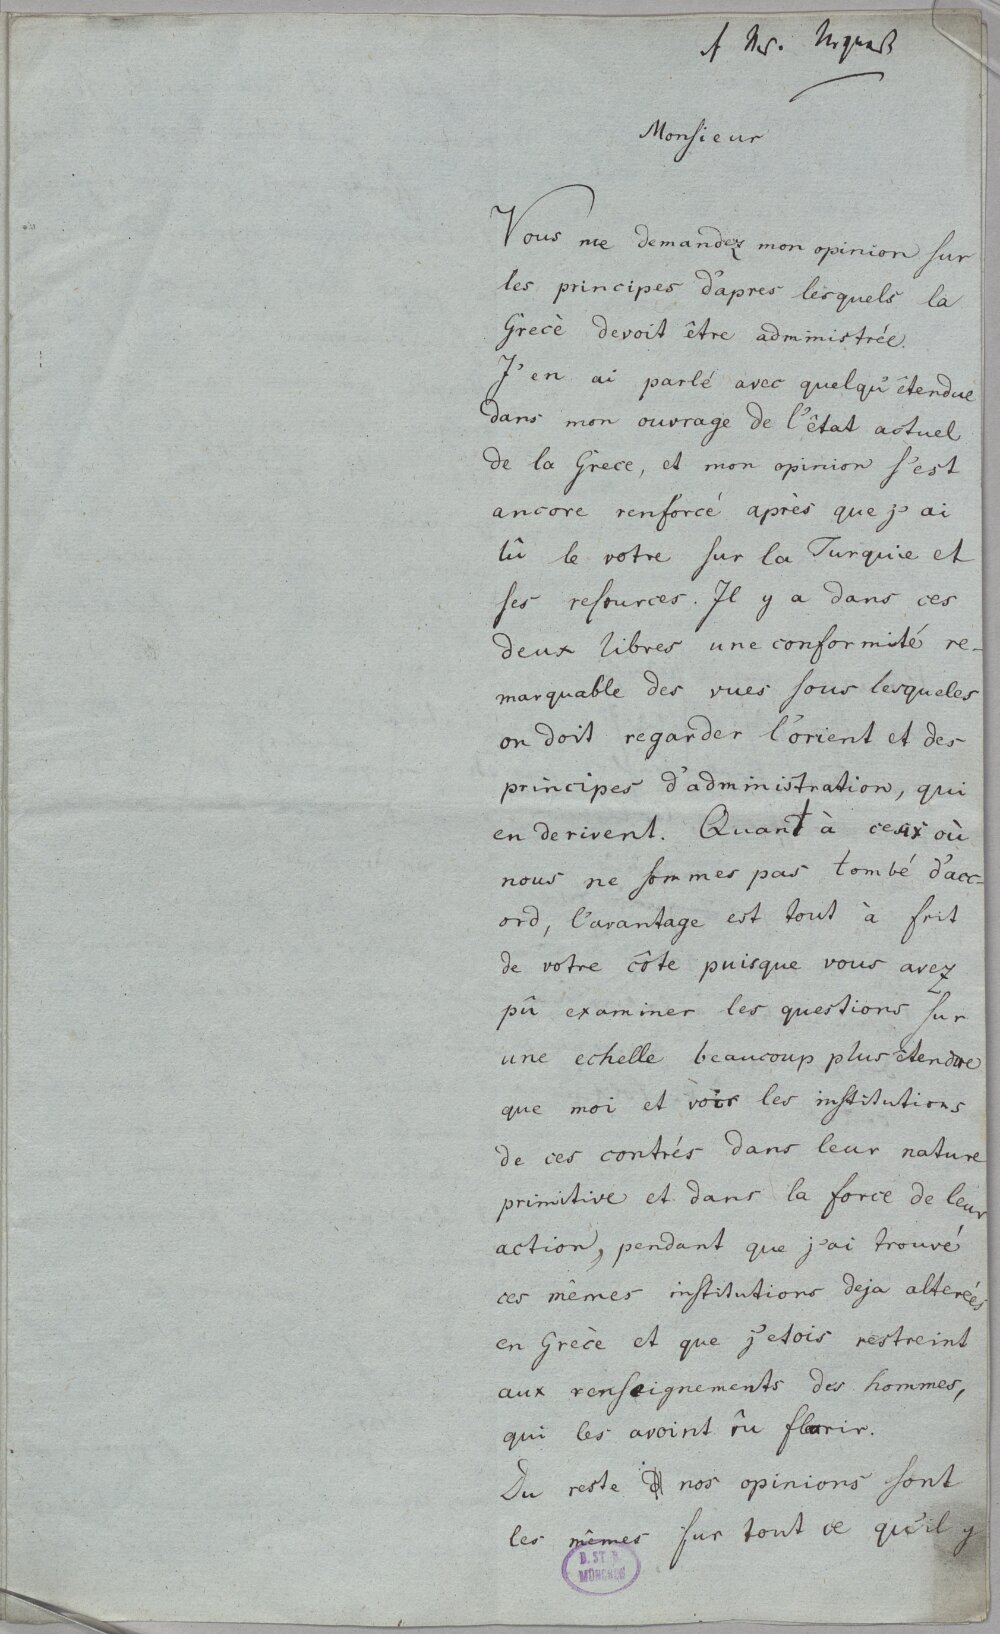 A Mr. Urquart
Monsieur
Vous me demandez mon opinion sur
les principes d'apres lesquels la
Grecè devoit être administrée.
J'en ai parlé avec quelqu'êtendue
dans mon ouvrage de l'êtat actuel
de la Grece, et mon opinion s'est
ancore renforcé après que j'ai
lû le votre sur la Turquie et
ses resources. Il y a dans ces
deux libres une conformité re-
marquable des vues sous lesqueles
on doit regarder l'orient et des
principes d'administration, qui
en derivent. Quant à ceux où
nous ne sommes pas tombé d'acc-
ord, l'avantage est tout à frit
de votre côte puisque vous avez
pû examiner les questions sur
une echelle beaucoup plus êtendue
que moi et voir les institutions
de ces contrés dans leur nature
primitive et dans la force de leur
action, pendant que j'ai trouvé
ces mêmes institutions deja altereés
en Grèce et que j'etois restreint
aux renseignements des hommes,
qui les avoint vu flurir.
Du reste nos opinions sont
les mêmes sur tout ce qu'il y
B. ST. B.
MÜNCHEN